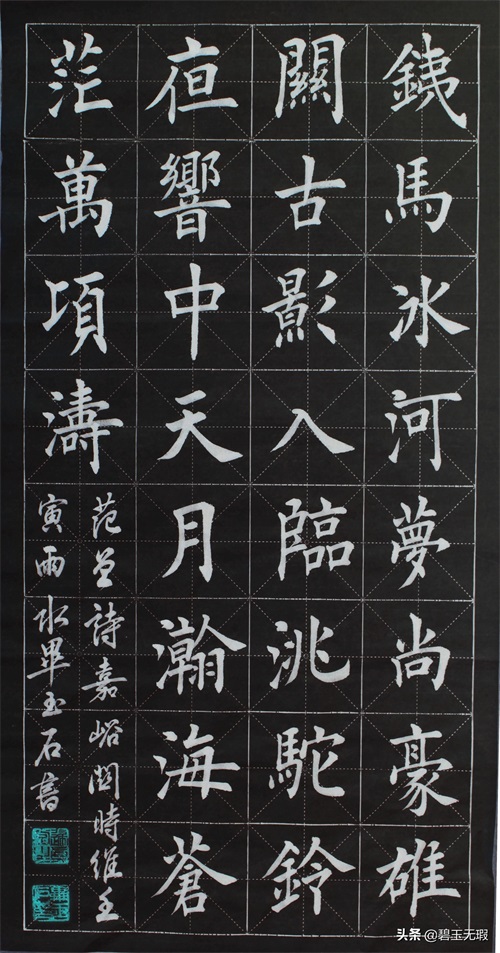 銕馬冰河夢尚豪雄
關古影入臨洮駝鈴
亱響中天月瀚海蒼
茫萬頃濤
范曾詩嘉峪関時維壬
寅雨水畢玉石書
头条 @碧玉无瑕